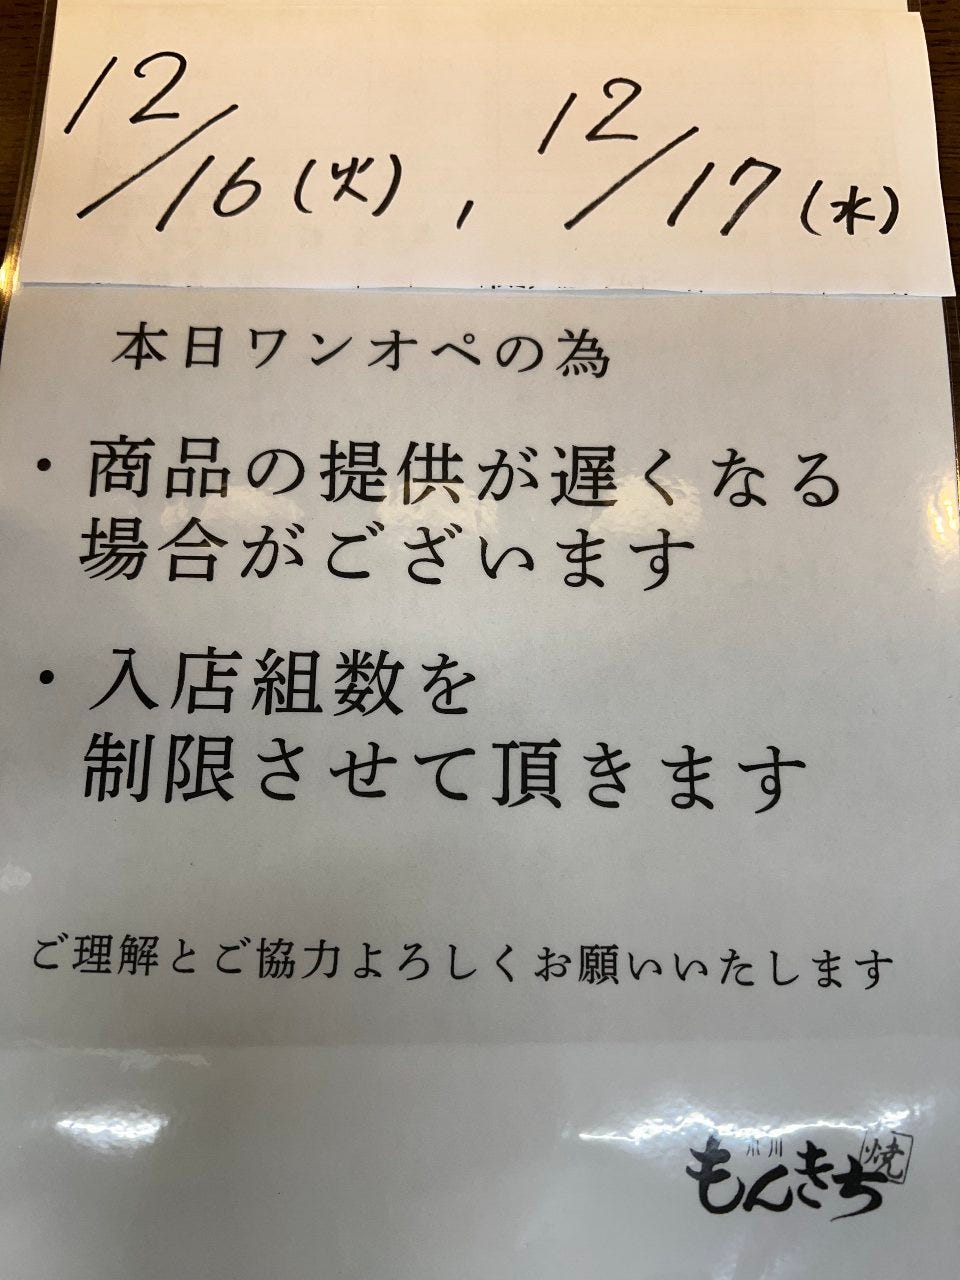 12/16(火), 12/17(水)
本日ワンオペの為
・商品の提供が遅くなる
場合がございます
・入店組数を
制限させて頂きます
ご理解とご協力よろしくお願いいたします
もんきち
焼